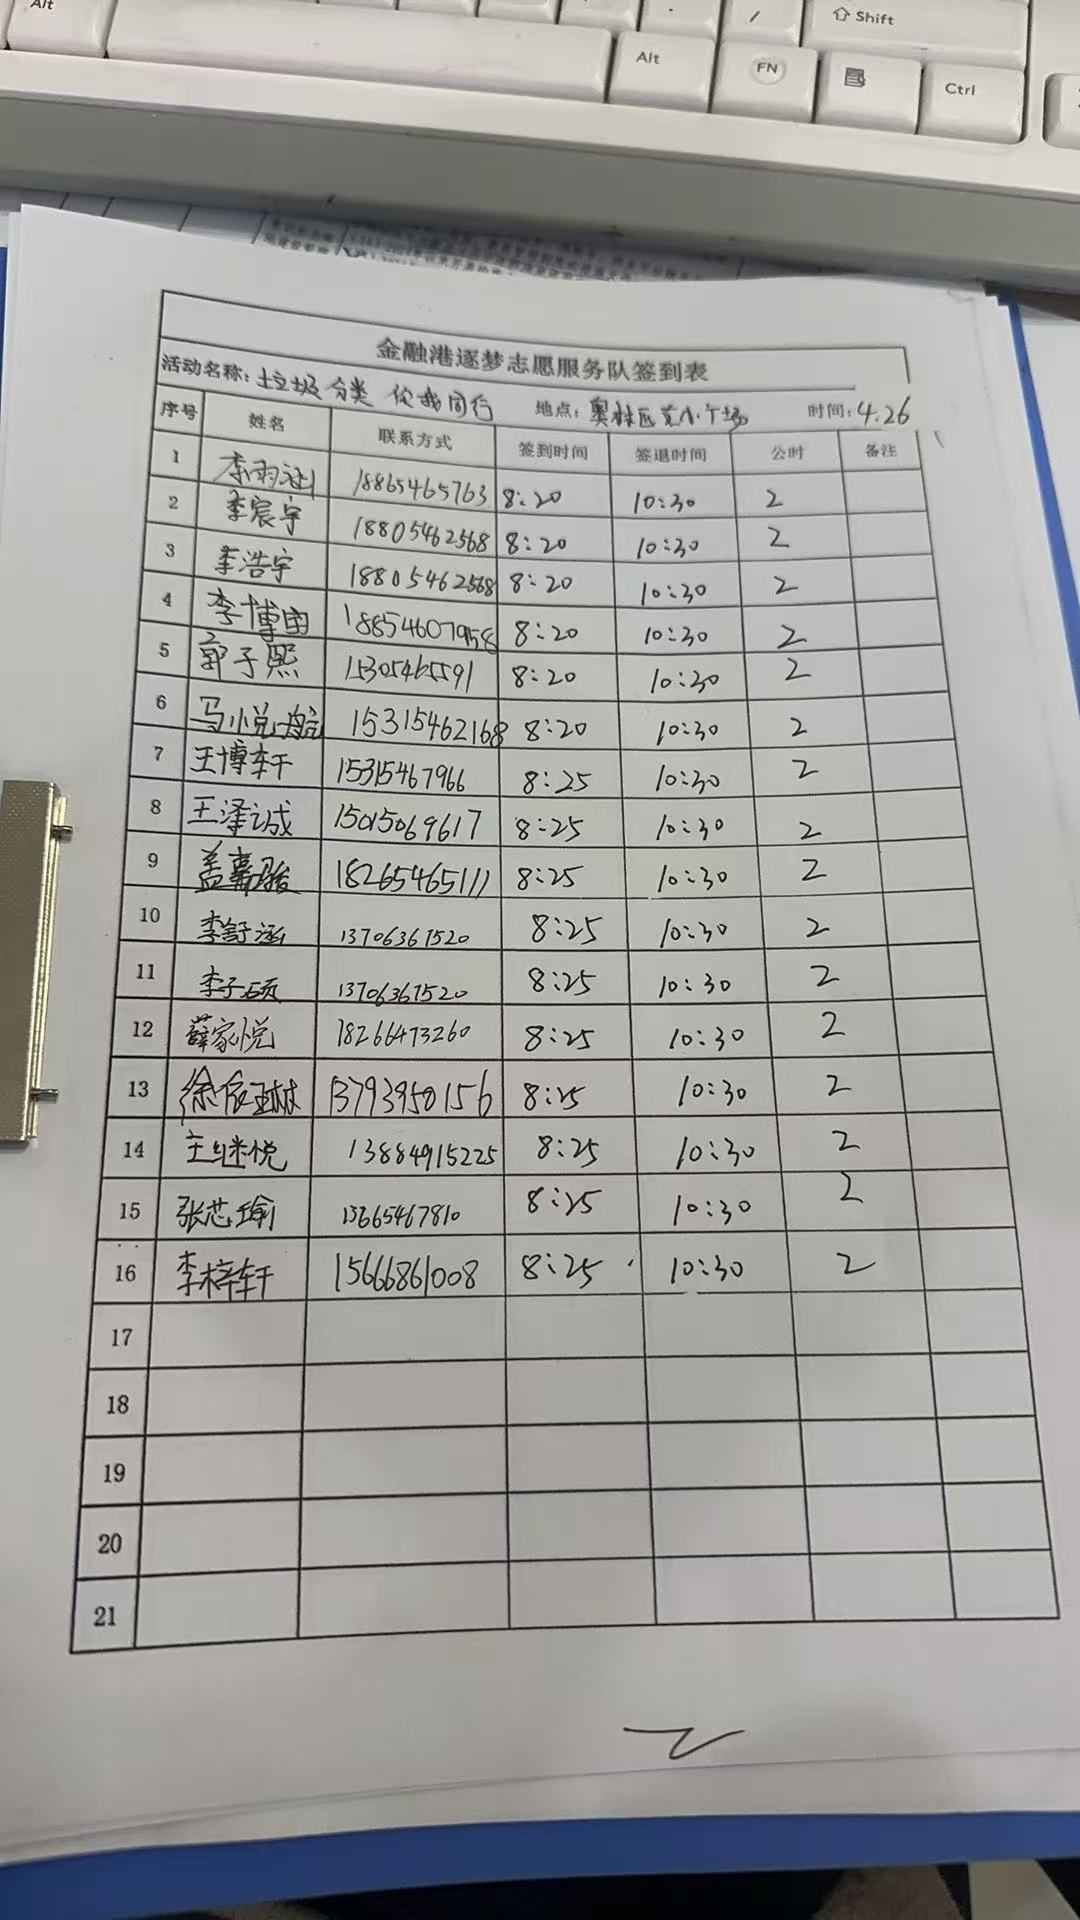 Alt
/
Shift
Alt
FN
Ctrl
金融港逐梦志愿服务队签到表
活动名称: 垃圾分类 你我同行 地点: 奥林匹克小广场 时间: 4.26
序号 姓名 联系方式 签到时间 签退时间 公时 备注
1 李雨涵 18865465763 8:20 10:30 2
2 李宸宇 18805462568 8:20 10:30 2
3 李浩宇 18805462568 8:20 10:30 2
4 李博宇 18854607958 8:20 10:30 2
5 郭子熙 15305465591 8:20 10:30 2
6 马小悦航 15315462168 8:20 10:30 2
7 王博轩 15315467966 8:25 10:30 2
8 王泽诚 15015069617 8:25 10:30 2
9 盖嘉骏 18265465111 8:25 10:30 2
10 李舒涵 13706367520 8:25 10:30 2
11 李子硕 13706367520 8:25 10:30 2
12 薛家悦 18266473260 8:25 10:30 2
13 徐依琳 13793950156 8:25 10:30 2
14 王继悦 13884915225 8:25 10:30 2
15 张芯瑜 13665467810 8:25 10:30 2
16 李梓轩 15666861008 8:25 10:30 2
17
18
19
20
21